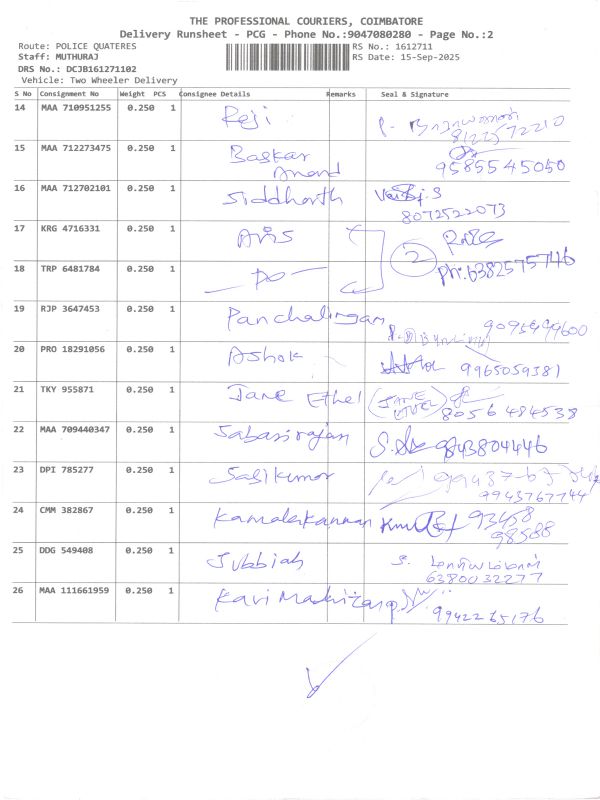 THE PROFESSIONAL COURIERS, COIMBATORE
Delivery Runsheet - PCG - Phone No.:9047080280 - Page No.:2
Route: POLICE QUATERES RS No.: 1612711
Staff: MUTHURAJ RS Date: 15-Sep-2025
DRS No.: DCJB161271102
Vehicle: Two Wheeler Delivery
S No Consignment No Weight PCS Consignee Details Remarks Seal & Signature
14 MAA 710951255 0.250 1 Reji
8122572210
15 MAA 712273475 0.250 1 Baskar Anand
9585545050
16 MAA 712702101 0.250 1 Siddharth
8072522073
17 KRG 4716331 0.250 1 2
18 TRP 6481784 0.250 1 - Do - Ph: 6382575746
19 RJP 3647453 0.250 1 Panchalingam
20 PRO 18291056 0.250 1 Ashok 9965059381
21 TKY 955871 0.250 1 Jane Ethel 8056484538
22 MAA 709440347 0.250 1 Sabarirajan 9843804446
23 DPI 785277 0.250 1 Sasikumar
9943767744
24 CMM 382867 0.250 1 Kamalakannan 93458
98588
25 DDG 549408 0.250 1 Subbiah S.
6380032277
26 MAA 111661959 0.250 1
9942265176